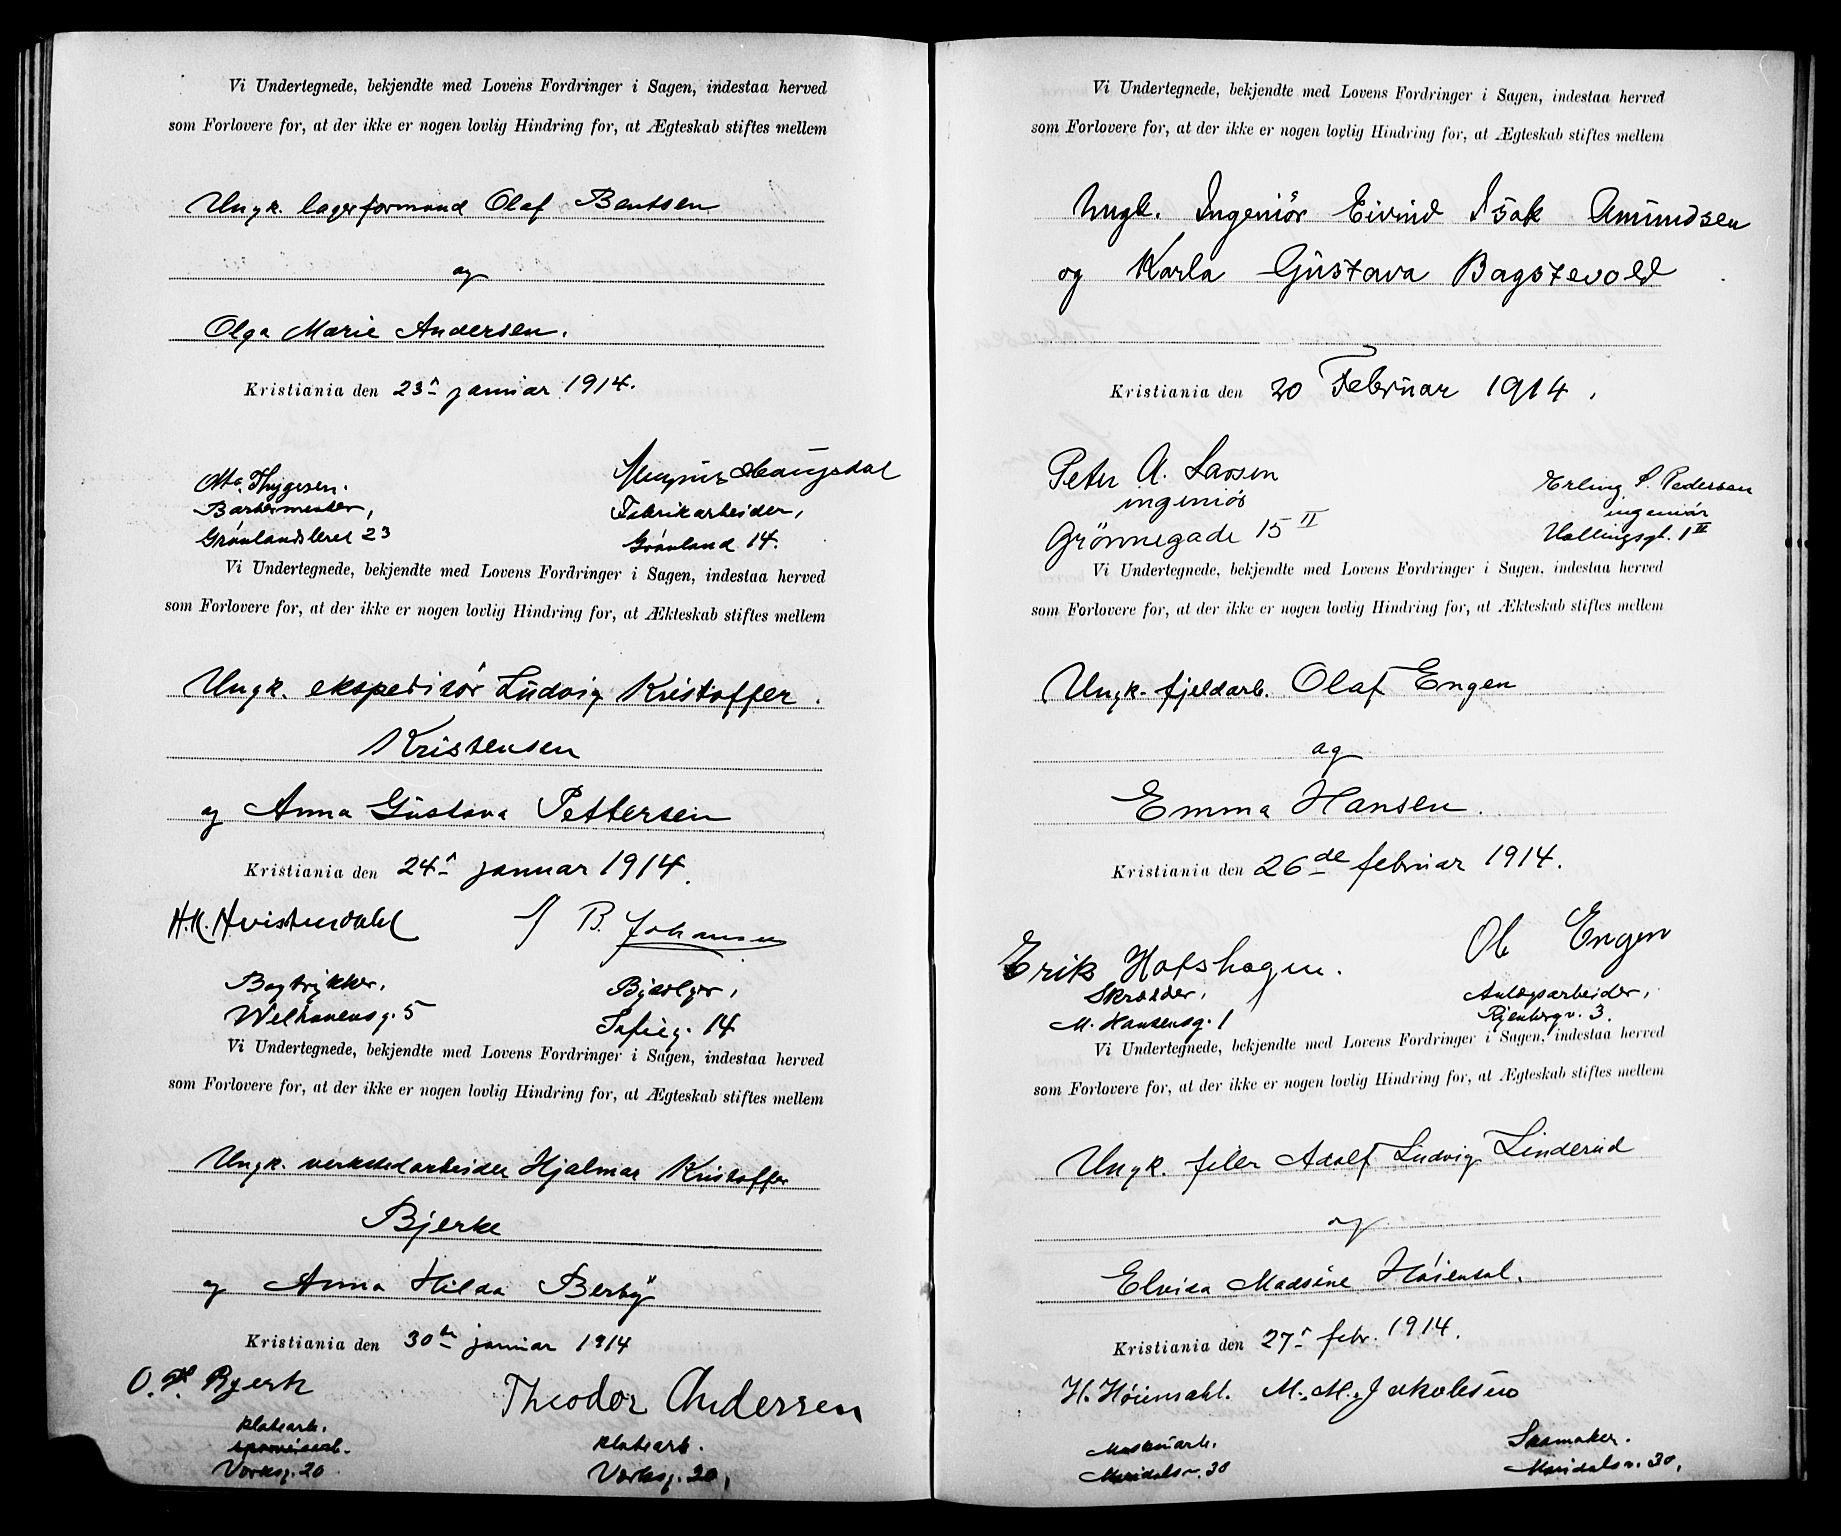 Vi Undertegnede, bekjendte med Lovens Fordringer i Sagen, indestaa herved
som Forlovere for, at der ikke er nogen lovlig Hindring for, at Ægteskab stiftes mellem
Ungk. lagerformand Olaf Bentsen
og
Olga Marie Andersen.
Kristiania den 23n januar 1914.
Otto Thygesen. Magnus Haugsdal
Barbermester, Fabrikarbeider,
Grønlandsleret 23 Grønland 14.
Vi Undertegnede, bekjendte med Lovens Fordringer i Sagen, indestaa herved
som Forlovere for, at der ikke er nogen lovlig Hindring for, at Ækteskab stiftes mellem
Ungk. ekspeditør Ludvig Kristoffer
Kristensen
og Anna Gustava Pettersen
Kristiania den 24n januar 1914.
H.K. Hvistendahl B. Johansen
Bogtrykker,
Welhavensg. 5 Sofieg. 14
Vi Undertegnede, bekjendte med Lovens Fordringer i Sagen, indestaa herved
som Forlovere for, at der ikke er nogen lovlig Hindring for, at Ægteskab stiftes mellem
Ungk. verkstedarbeider Hjalmar Kristoffer
Bjerke
og Anna Hilda Berby
Kristiania den 30te januar 1914
O. Bjerk Theodor Andersen
platearb. platearb.
Verksg. 20 Verksg. 20,
Vi Undertegnede, bekjendte med Lovens Fordringer i Sagen, indestaa herved
som Forlovere for, at der ikke er nogen lovlig Hindring for, at Ægteskab stiftes mellem
Ungk. Ingeniör Eivind Isak Amundsen
og Karla Gustava Bagstevold
Kristiania den 20 Februar 1914.
Peter A. Larsen Erling S. Pedersen
ingeniör ingeniør
Grönnegade 15 II Hallingsgt. 1 II
Vi Undertegnede, bekjendte med Lovens Fordringer i Sagen, indestaa herved
som Forlovere for, at der ikke er nogen lovlig Hindring for, at Ækteskab stiftes mellem
Ungk. fjeldarb. Olaf Engen
og
Emma Hansen.
Kristiania den 26de februar 1914.
Erik Hofshagen. Ole Engen
Skrædder, Anlægsarbeider,
M. Hansensg. 1 3.
Vi Undertegnede, bekjendte med Lovens Fordringer i Sagen, indestaa herved
som Forlovere for, at der ikke er nogen lovlig Hindring for, at Ægteskab stiftes mellem
Ungk. filer Adolf Ludvig Linderud
og
Elvida Madsine Høiendal.
Kristiania den 27n febr. 1914.
H. Høiendahl. M. M. Jakobsen
Maskinarb. Skomaker.
Maridalsv. 30 Maridalsv. 30,